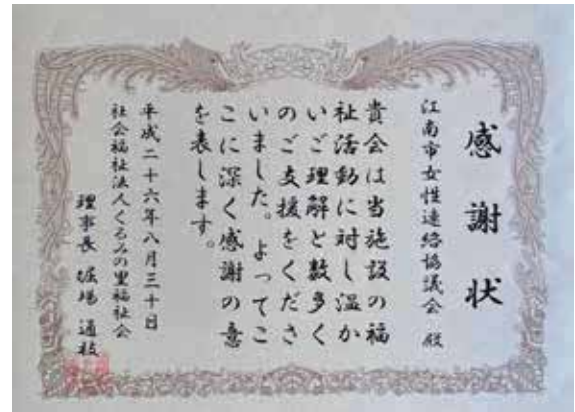 感謝状
江南市女性連絡協議会 殿
貴会は当施設の福
祉活動に対し温か
いご理解と数多く
のご支援をくださ
いました。よってこ
こに深く感謝の意
を表します。
平成二十六年八月三十日
社会福祉法人くるみの里福祉会
理事長 堀場 通枝